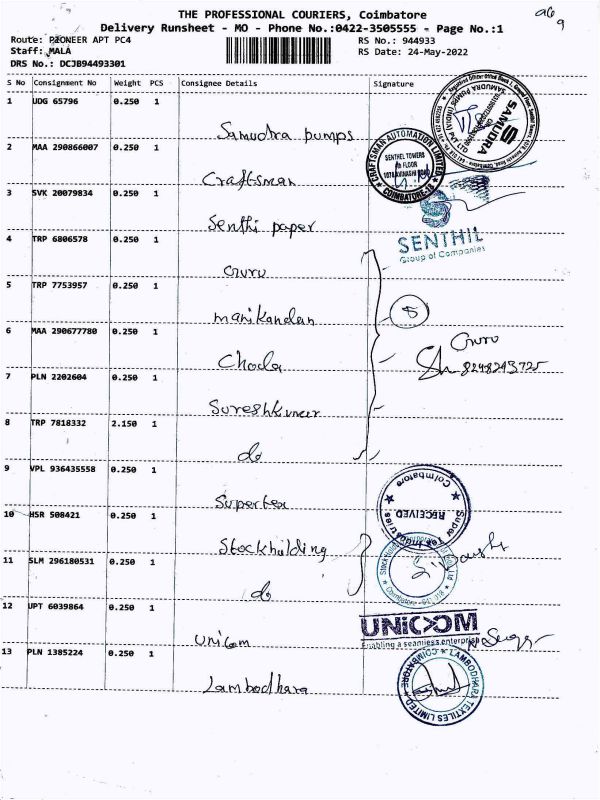 THE PROFESSIONAL COURIERS, Coimbatore
Delivery Runsheet - MO - Phone No.:0422-3505555 - Page No.:1
Route: PIONEER APT PC4
RS No.: 944933
Staff: MALA
RS Date: 24-May-2022
DRS No.: DCJB94493301
S No Consignment No Weight PCS Consignee Details Signature
1 UDG 65796 0.250 1
Samudra pumps
SAMUDRA
2 MAA 290866007 0.250 1
Craftsman
CRAFTSMAN AUTOMATION LIMITED
SENTHEL TOWERS
COIMBATORE-18
3 SVK 20079834 0.250 1
Senthi paper
SENTHIL
Group of Companies
4 TRP 6806578 0.250 1
Guru
5 TRP 7753957 0.250 1
manikandan
5
6 MAA 290677780 0.250 1
Choda
Guru
8248243725
7 PLN 2202604 0.250 1
Sureshkumar
8 TRP 7818332 2.150 1
do
9 VPL 936435558 0.250 1
Supertex
Super Tex Industries
Coimbatore
RECEIVED
10 HSR 508421 0.250 1
Stockholding
11 SLM 296180531 0.250 1
do
12 UPT 6039864 0.250 1
Unicom
UNICOM
Enabling a seamless enterprise
13 PLN 1385224 0.250 1
Lambodhara
LAMBODHARA TEXTILES LIMITED
COIMBATORE